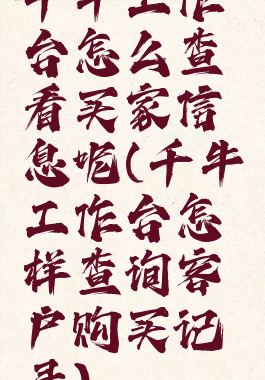 千牛工作
台怎么查
看买家信
息呢(千牛
工作台怎
样查询客
户购买记
录)